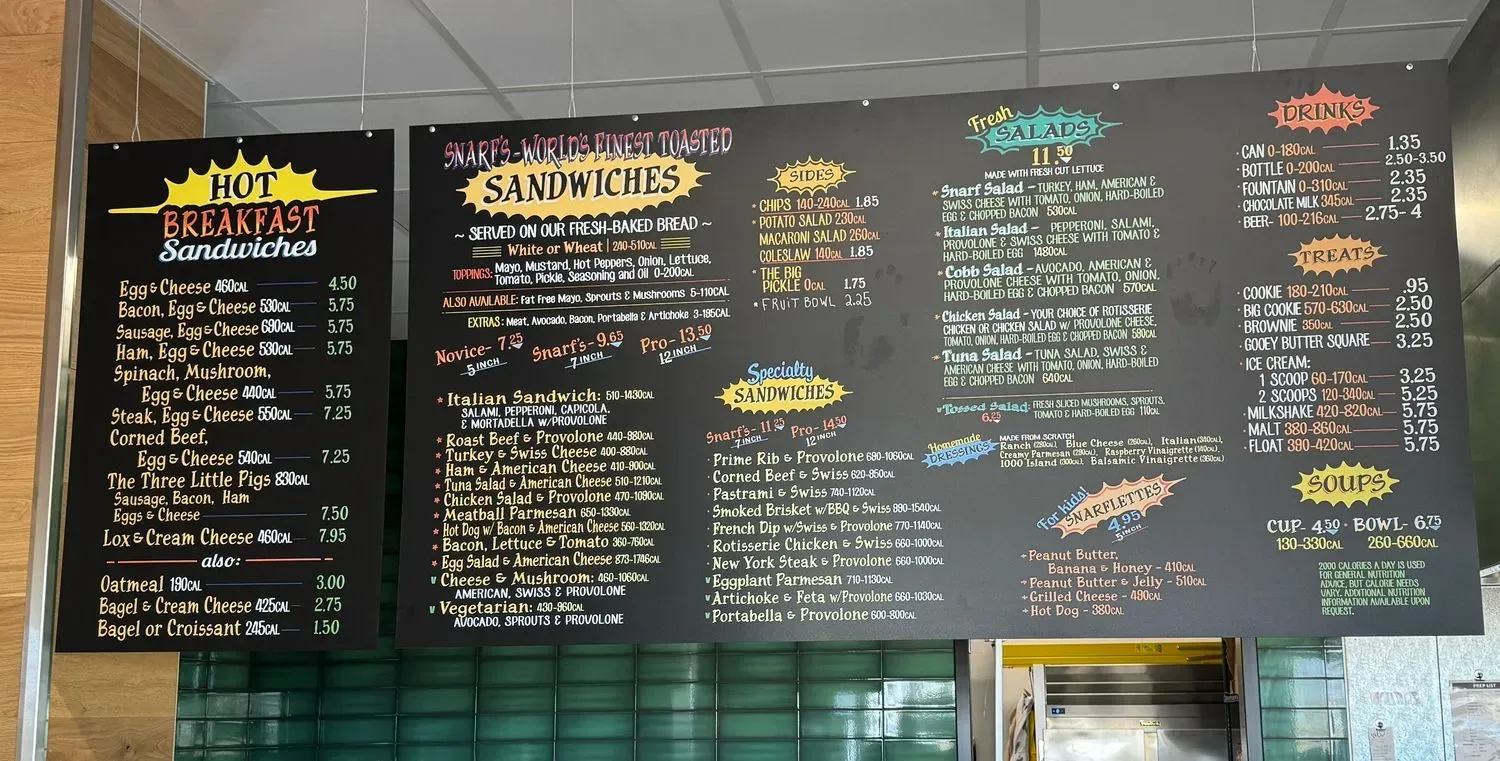 HOT
BREAKFAST
Sandwiches
Egg & Cheese 460CAL 4.50
Bacon, Egg & Cheese 530CAL 5.75
Sausage, Egg & Cheese 690CAL 5.75
Ham, Egg & Cheese 530CAL 5.75
Spinach, Mushroom,
Egg & Cheese 440CAL 5.75
Steak, Egg & Cheese 550CAL 7.25
Corned Beef,
Egg & Cheese 540CAL 7.25
The Three Little Pigs 830CAL
Sausage, Bacon, Ham
Eggs & Cheese 7.50
Lox & Cream Cheese 460CAL 7.95
also:
Oatmeal 190CAL 3.00
Bagel & Cream Cheese 425CAL 2.75
Bagel or Croissant 245CAL 1.50
SNARF'S - WORLD'S FINEST TOASTED
SANDWICHES
~ SERVED ON OUR FRESH-BAKED BREAD ~
White or Wheat | 240-510CAL
TOPPINGS: Mayo, Mustard, Hot Peppers, Onion, Lettuce,
Tomato, Pickle, Seasoning and Oil 0-200CAL
ALSO AVAILABLE: Fat Free Mayo, Sprouts & Mushrooms 5-110CAL
EXTRAS: Meat, Avocado, Bacon, Portabella & Artichoke 3-195CAL
Novice- 7.25 Snarf's- 9.65 Pro- 13.50
5 INCH 7 INCH 12 INCH
Italian Sandwich: 510-1430CAL
SALAMI, PEPPERONI, CAPICOLA,
& MORTADELLA W/PROVOLONE
Roast Beef & Provolone 440-880CAL
Turkey & Swiss Cheese 400-880CAL
Ham & American Cheese 410-900CAL
Tuna Salad & American Cheese 510-1210CAL
Chicken Salad & Provolone 470-1090CAL
Meatball Parmesan 650-1330CAL
Hot Dog w/ Bacon & American Cheese 560-1320CAL
Bacon, Lettuce & Tomato 360-760CAL
Egg Salad & American Cheese 873-1746CAL
V Cheese & Mushroom: 460-1060CAL
AMERICAN, SWISS & PROVOLONE
V Vegetarian: 430-960CAL
AVOCADO, SPROUTS & PROVOLONE
SIDES
CHIPS 140-240CAL 1.85
POTATO SALAD 230CAL
MACARONI SALAD 260CAL
COLESLAW 140CAL 1.85
THE BIG
PICKLE 0CAL 1.75
FRUIT BOWL 2.25
Specialty
SANDWICHES
Snarf's- 11.25 Pro- 14.50
7 INCH 12 INCH
Prime Rib & Provolone 680-1060CAL
Corned Beef & Swiss 620-850CAL
Pastrami & Swiss 740-1120CAL
Smoked Brisket w/BBQ & Swiss 890-1540CAL
French Dip w/Swiss & Provolone 770-1140CAL
Rotisserie Chicken & Swiss 660-1000CAL
New York Steak & Provolone 660-1000CAL
V Eggplant Parmesan 710-1130CAL
V Artichoke & Feta w/Provolone 660-1030CAL
V Portabella & Provolone 600-800CAL
Fresh
SALADS
11.50
MADE WITH FRESH CUT LETTUCE
Snarf Salad - TURKEY, HAM, AMERICAN &
SWISS CHEESE WITH TOMATO, ONION, HARD-BOILED
EGG & CHOPPED BACON 530CAL
Italian Salad - PEPPERONI, SALAMI,
PROVOLONE & SWISS CHEESE WITH TOMATO &
HARD-BOILED EGG 1480CAL
Cobb Salad - AVOCADO, AMERICAN &
PROVOLONE CHEESE WITH TOMATO, ONION,
HARD-BOILED EGG & CHOPPED BACON 570CAL
Chicken Salad - YOUR CHOICE OF ROTISSERIE
CHICKEN OR CHICKEN SALAD W/ PROVOLONE CHEESE,
TOMATO, ONION, HARD-BOILED EGG & CHOPPED BACON 590CAL
Tuna Salad - TUNA SALAD, SWISS &
AMERICAN CHEESE WITH TOMATO, ONION, HARD-BOILED
EGG & CHOPPED BACON 640CAL
V Tossed Salad: FRESH SLICED MUSHROOMS, SPROUTS,
6.25 TOMATO & HARD-BOILED EGG 110CAL
Homemade
DRESSINGS
MADE FROM SCRATCH
Ranch (280CAL), Blue Cheese (260CAL), Italian (340CAL),
Creamy Parmesan (290CAL), Raspberry Vinaigrette (140CAL),
1000 Island (300CAL), Balsamic Vinaigrette (360CAL)
For kids!
SNARFLETTES
4.95
5 INCH
Peanut Butter,
Banana & Honey - 410CAL
Peanut Butter & Jelly - 510CAL
Grilled Cheese - 490CAL
Hot Dog - 380CAL
DRINKS
CAN 0-180CAL 1.35
BOTTLE 0-200CAL 2.50-3.50
FOUNTAIN 0-310CAL 2.35
CHOCOLATE MILK 345CAL 2.35
BEER- 100-216CAL 2.75- 4
TREATS
COOKIE 180-210CAL .95
BIG COOKIE 570-630CAL 2.50
BROWNIE 350CAL 2.50
GOOEY BUTTER SQUARE 3.25
ICE CREAM:
1 SCOOP 60-170CAL 3.25
2 SCOOPS 120-340CAL 5.25
MILKSHAKE 420-820CAL 5.75
MALT 380-860CAL 5.75
FLOAT 390-420CAL 5.75
SOUPS
CUP- 4.50 · BOWL- 6.75
130-330CAL 260-660CAL
2000 CALORIES A DAY IS USED
FOR GENERAL NUTRITION
ADVICE, BUT CALORIE NEEDS
VARY. ADDITIONAL NUTRITION
INFORMATION AVAILABLE UPON
REQUEST.
PREP LIST